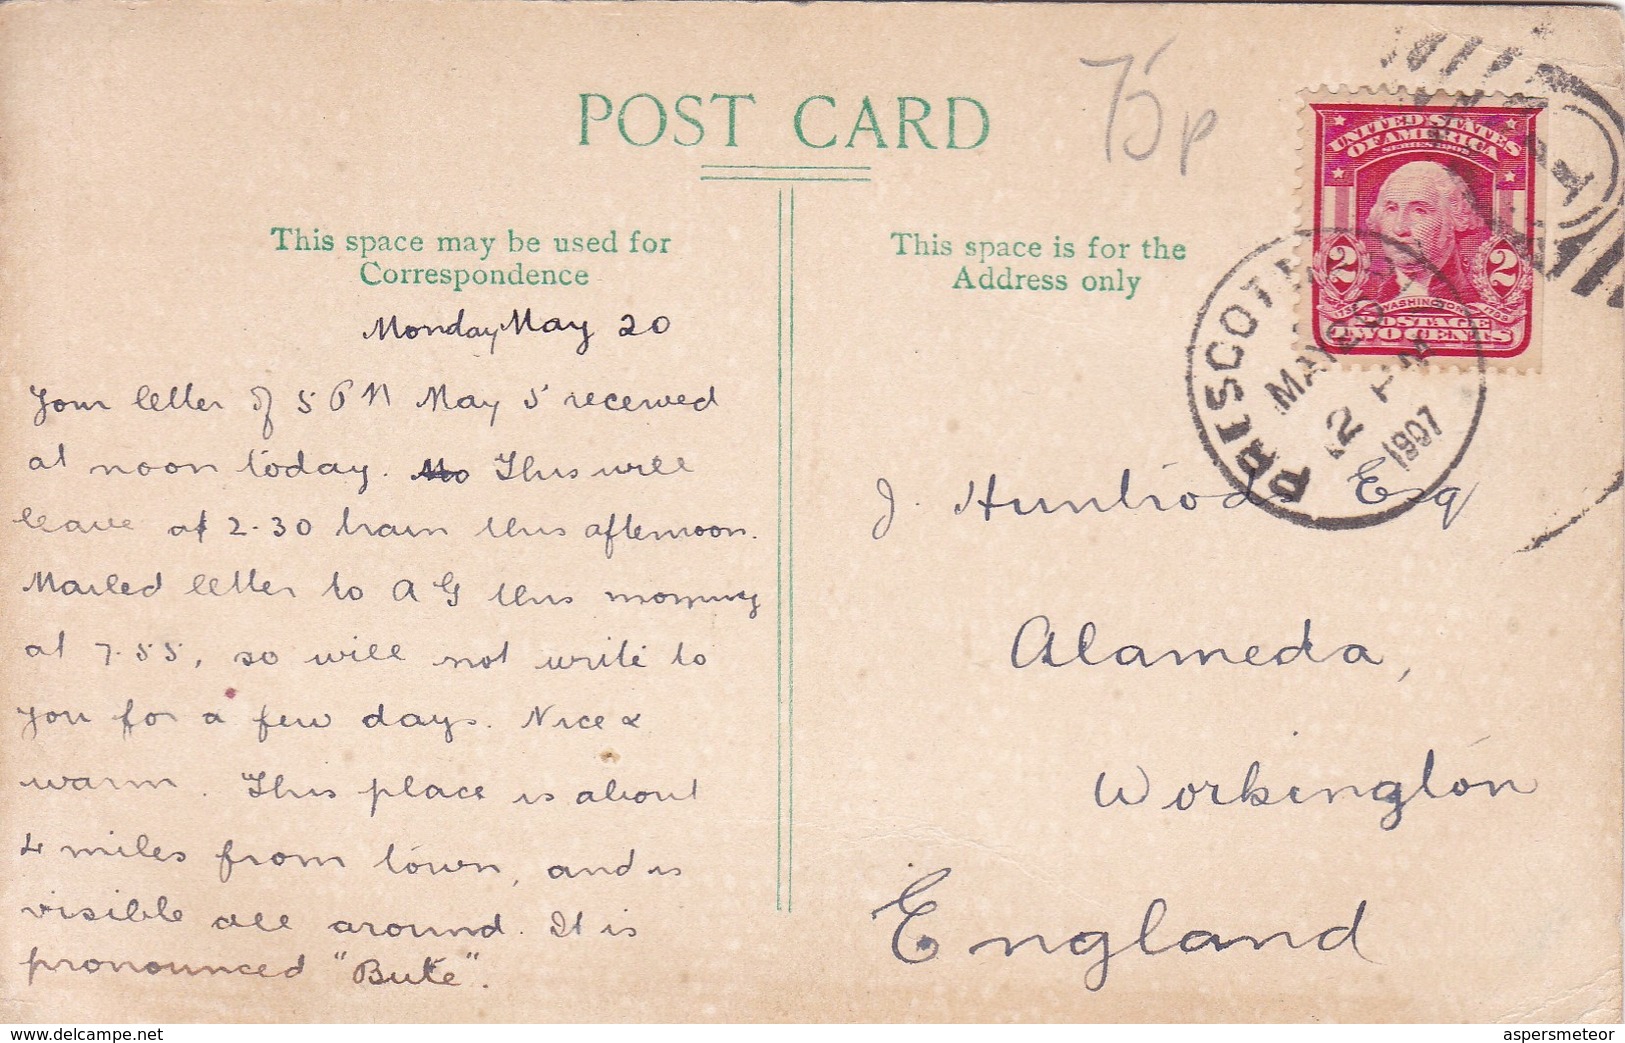 POST CARD
75p
This space may be used for
Correspondence
This space is for the
Address only
UNITED STATES
OF AMERICA
SERIES 1902
2 2
WASHINGTON
POSTAGE
TWO CENTS
PRESCOTT
MAY 20
2 PM
1907
Monday May 20
Your letter of 5 PM May 5 received
at noon today. This will
leave at 2.30 train this afternoon.
Mailed letter to A G this morning
at 7.55, so will not write to
you for a few days. Nice &
warm. This place is about
4 miles from town, and is
visible all around. It is
pronounced "Bute".
J. Huntrods Esq
Alameda,
Workington
England
www.delcampe.net
aspersmeteor